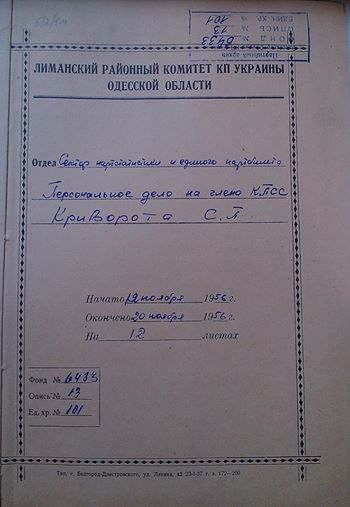 Партийный архив
ФОНД № 6433
ОПИСЬ № 13
ЕДИН. ХР. № 101
ЛИМАНСКИЙ РАЙОННЫЙ КОМИТЕТ КП УКРАИНЫ
ОДЕССКОЙ ОБЛАСТИ
Отдел Сектор партстатистики и единого партбилета
Персональное дело на члена КПСС
Криворота С.П
Начато 12 ноября 1956 г.
Окончено 20 ноября 1956 г.
На 12 листах
Фонд № 6433
Опись № 13
Ед. хр. № 101
Тип. г. Белгород-Днестровского, ул. Ленина, 42 23-I-57 г. з. 172—200